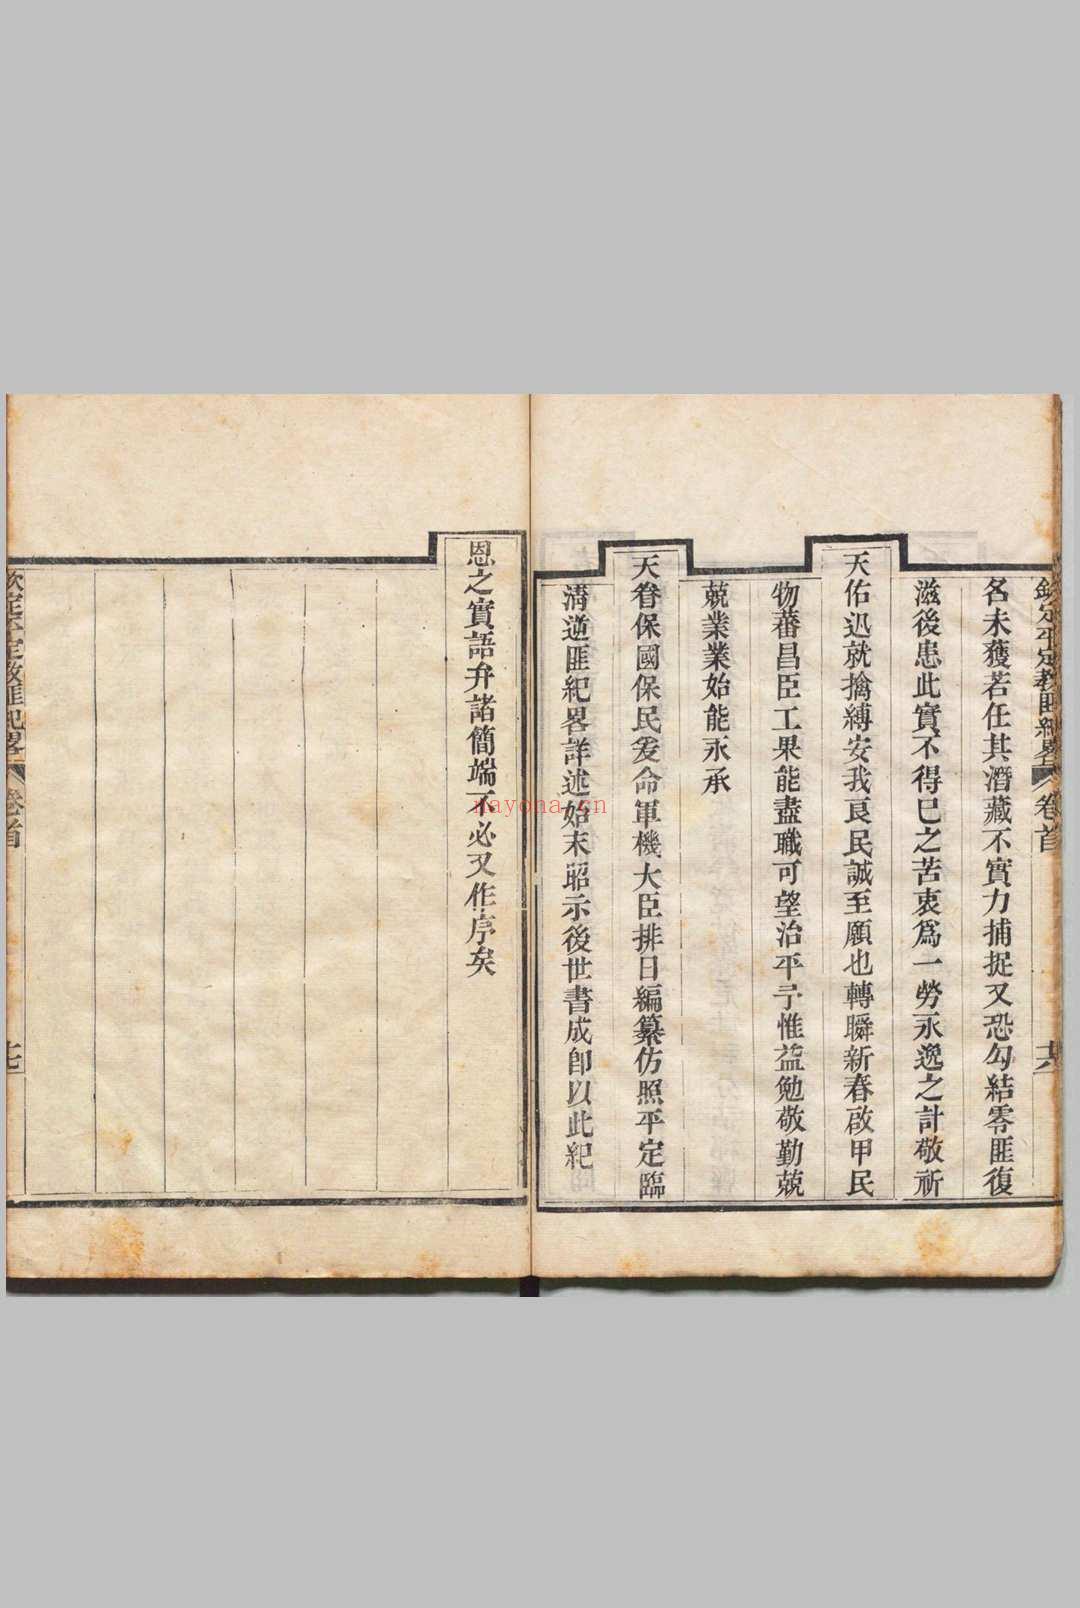 欽定平定教匪紀畧 卷首 十六
名未獲若任其潛藏不實力捕捉又恐勾結零匪復
滋後患此實不得已之苦衷爲一勞永逸之計敬祈
天佑迅就擒縛安我良民誠至願也轉瞬新春啟甲民
物蕃昌臣工果能盡職可望治平予惟益勉敬勤兢
兢業業始能永承
天眷保國保民爰命軍機大臣排日編纂仿照平定臨
淸逆匪紀畧詳述始末昭示後世書成卽以此紀
恩之實語弁諸簡端不必又作序矣
欽定平定教匪紀畧 卷首 十七
nayona.cn